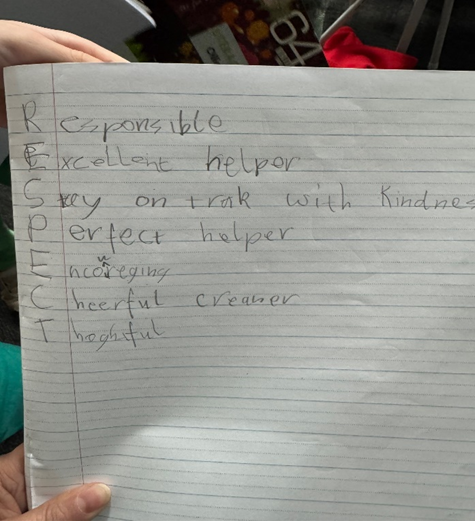 Responsible
Excellent helper
Stey on trak with Kindnes
Perfect helper
Encoureging
Cheerful creaner
Thoghtful